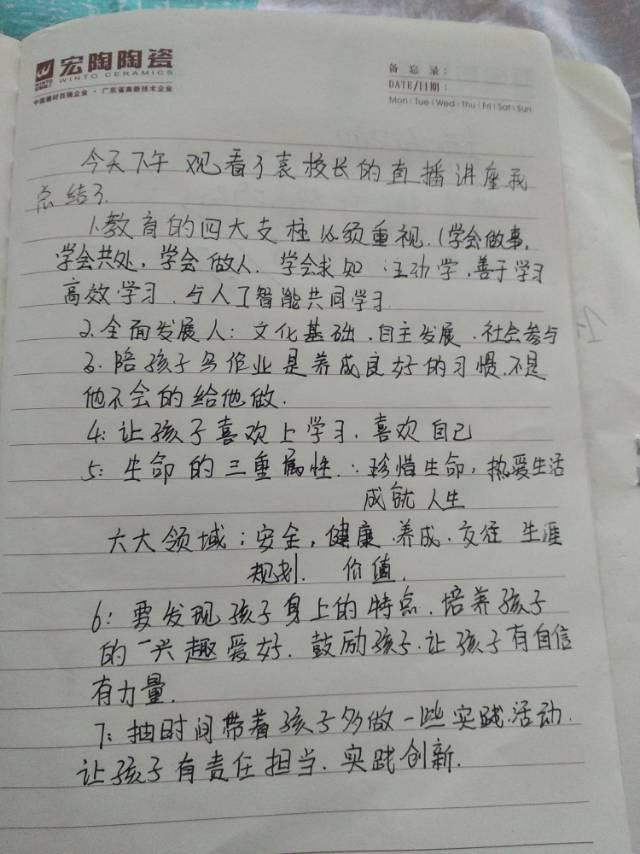 宏陶陶瓷
WINTO CERAMICS
中国建材百强企业·广东省高新技术企业
备忘录:
DATE/日期:
Mon|Tue|Wed|Thu|Fri|Sat|Sun
今天下午观看了袁校长的直播讲座我
总结了
1.教育的四大支柱必须重视.(学会做事,
学会共处,学会做人.学会求知:主动学,善于学习
高效学习.与人工智能共同学习
2.全面发展人:文化基础.自主发展.社会参与
3.陪孩子写作业是养成良好的习惯.不是
他不会的给他做.
4:让孩子喜欢上学习.喜欢自己
5:生命的三重属性.:珍惜生命,热爱生活
成就人生
六大领域:安全,健康.养成.交往 生涯
规划. 价值.
6:要发现孩子身上的特点.培养孩子
的兴趣爱好.鼓励孩子.让孩子有自信
有力量.
7:抽时间带着孩子多做一些实践活动.
让孩子有责任担当.实践创新.